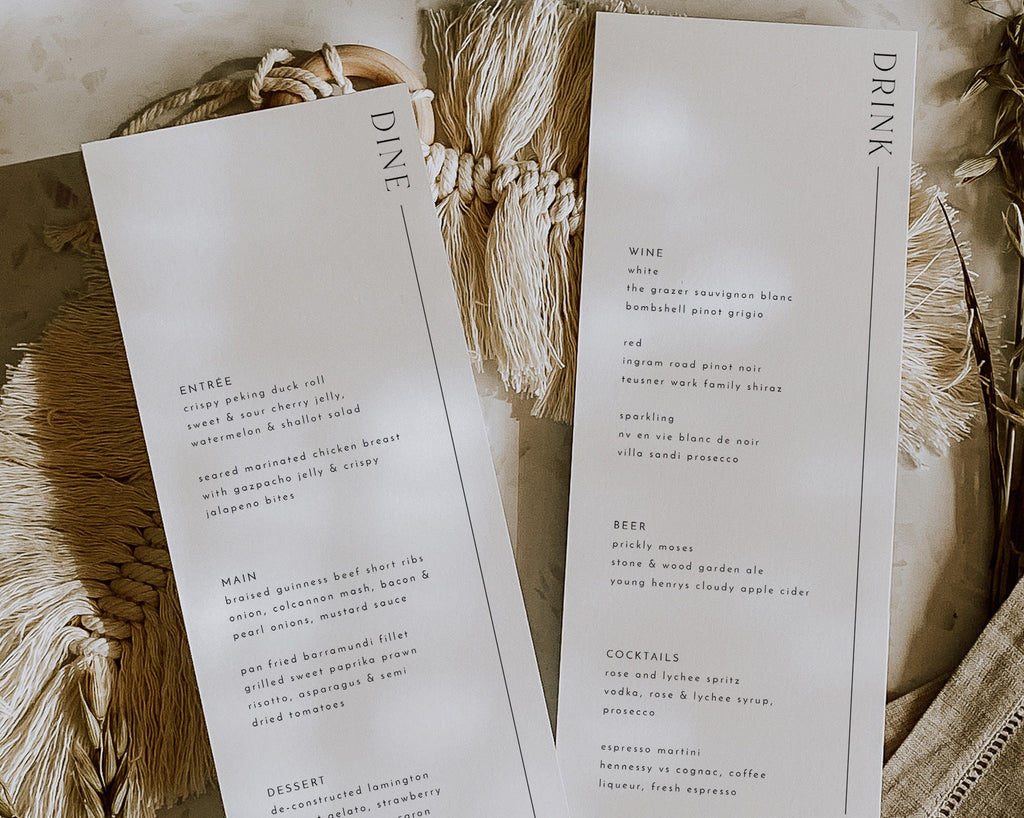 DINE
ENTRÉE
crispy peking duck roll
sweet & sour cherry jelly,
watermelon & shallot salad
seared marinated chicken breast
with gazpacho jelly & crispy
jalapeno bites
MAIN
braised guinness beef short ribs
onion, colcannon mash, bacon &
pearl onions, mustard sauce
pan fried barramundi fillet
grilled sweet paprika prawn
risotto, asparagus & semi
dried tomatoes
DESSERT
de-constructed lamington
gelato, strawberry
DRINK
WINE
white
the grazer sauvignon blanc
bombshell pinot grigio
red
ingram road pinot noir
teusner wark family shiraz
sparkling
nv en vie blanc de noir
villa sandi prosecco
BEER
prickly moses
stone & wood garden ale
young henrys cloudy apple cider
COCKTAILS
rose and lychee spritz
vodka, rose & lychee syrup,
prosecco
espresso martini
hennessy vs cognac, coffee
liqueur, fresh espresso